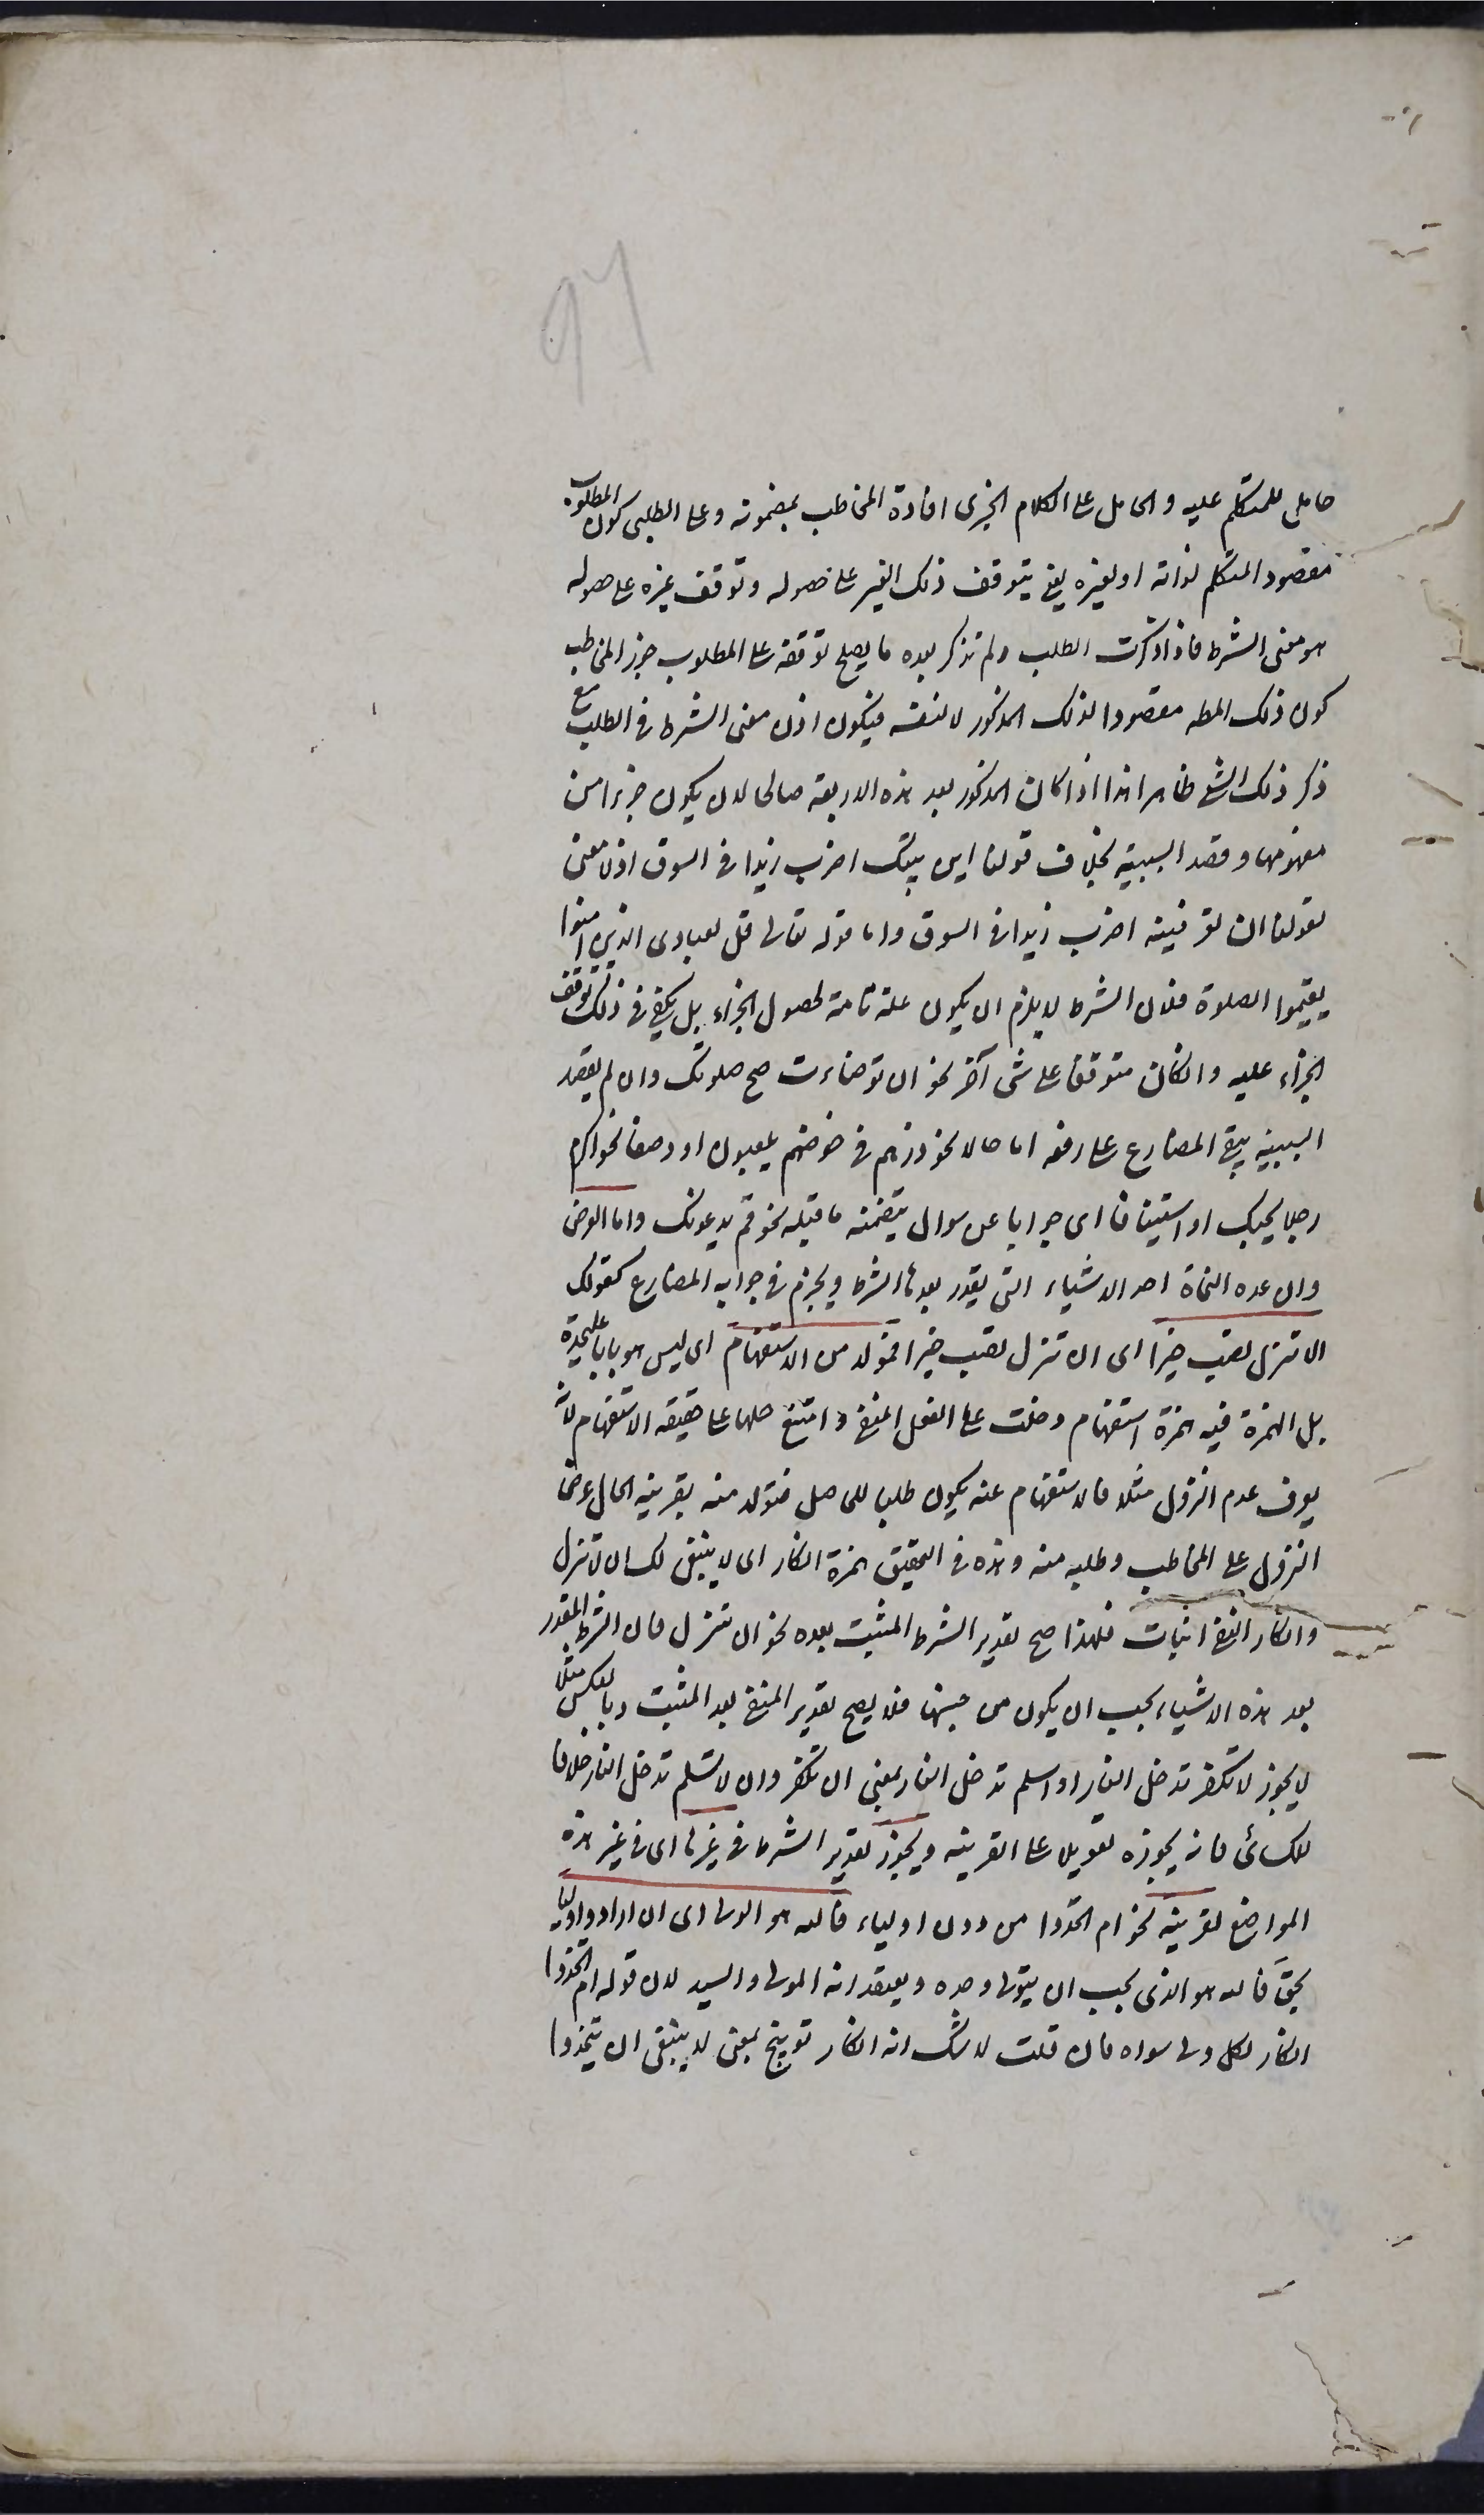 ٩٦
حامل للمتكلم عليه والحامل على الكلام الخبرى افادة المخاطب بمضمونه وعلى الطلبى كون المطلوب
مقصود المتكلم لذاته او لغيره يعنى يتوقف ذلك الغير على حصوله وتوقف غيره على حصوله
هو معنى الشرط فاذا ذكرت الطلب ولم تذكر بعده ما يصلح توقفه على المطلوب جوز المخاطب
كون ذلك المط مقصودا لذلك المذكور لا لنفسه فيكون اذن معنى الشرط فى الطلب مع
ذكر ذلك الشئ ظاهرا هذا اذا كان المذكور بعد هذه الاربعة صالحا لان يكون جزاء من
مفهومها وقصد السببية بخلاف قولنا اين بيتك اضرب زيدا فى السوق اذ لا معنى
لقولنا ان تعرفنيه اضرب زيدا فى السوق واما قوله تعالى قل لعبادى الذين آمنوا
يقيموا الصلوة فلان الشرط لا يلزم ان يكون علة تامة لحصول الجزاء بل يكفى فى ذلك توقف
الجزاء عليه وان كان متوقفا على شئ آخر نحو ان توضاءت صح صلوتك وان لم يقصد
السببية يبقى المضارع على رفعه اما حالا نحو ذرهم فى خوضهم يلعبون او وصفا نحو اكرم
رجلا يحبك او استينافا اى جوابا عن سوال يتضمنه ما قبله نحو قم يدعونك واما العرض
وان عده النحاة احد الاشياء التى يقدر بعدها الشرط ويجزم فى جوابه المضارع كقولك
الا تنزل تصب خيرا اى ان تنزل تصب خيرا فمولد من الاستفهام اى ليس هو بابا عليحدة
بل الهمزة فيه همزة استفهام دخلت على الفعل المنفى وامتنع حملها على حقيقة الاستفهام لانه
يعرف عدم النزول مثلا فالاستفهام عنه يكون طلبا للحاصل فتولد منه بقرينة الحال عرض
النزول على المخاطب وطلبه منه وهذه فى التحقيق همزة انكار اى لا ينبغى لك ان لا تنزل
وانكار النفى اثبات فلهذا صح تقدير الشرط المثبت بعده نحو ان تنزل فان الشرط المقدر
بعد هذه الاشياء يجب ان يكون من جنسها فلا يصح تقدير المنفى بعد المثبت وبالعكس مثلا
لا يجوز لا تكفر تدخل النار او اسلم تدخل النار بمعنى ان تكفر وان لا تسلم تدخل النار خلافا
للكسائى فانه يجوزه تعويلا على القرينة ويجوز تقدير الشرط فى غيرها اى فى غير هذه
المواضع لقرينة نحو ام اتخذوا من دون اولياء فالله هو الولى اى ان ارادوا وليا
بحق فالله هو الذى يجب ان يتولى وحده ويعتقد انه المولى والسيد لان قوله ام اتخذوا
انكار لكل ولى سواه فان قلت لا شك انه انكار توبيخ بمعنى لا ينبغى ان يتخذوا